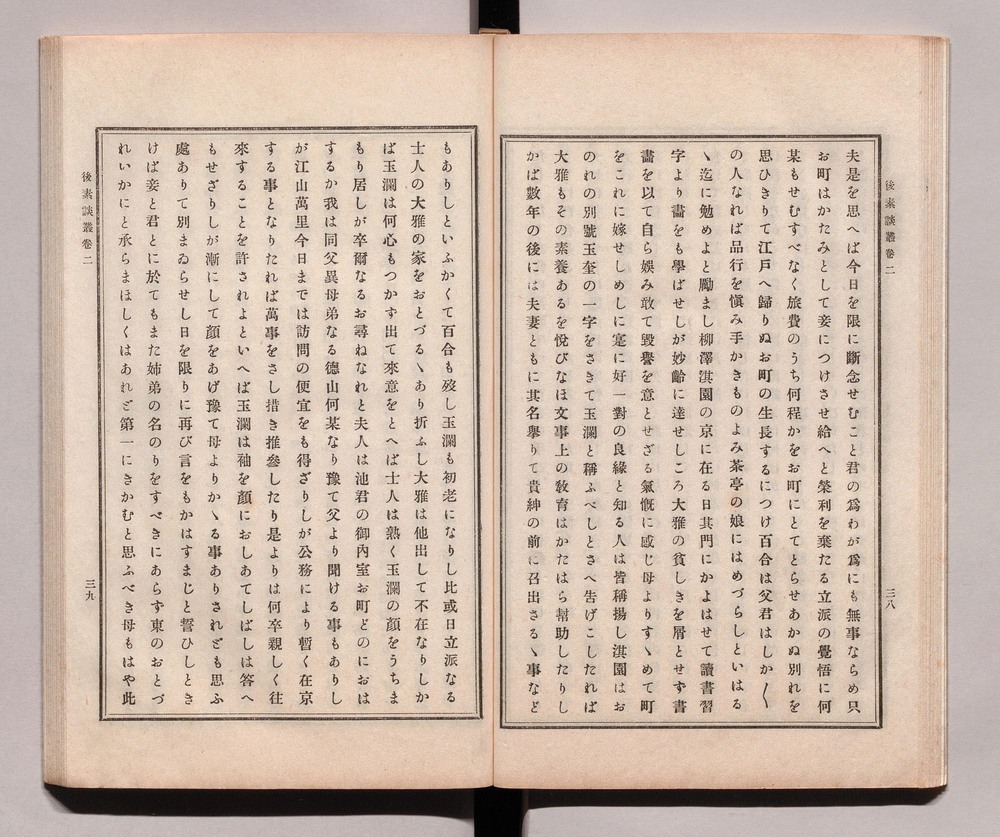 後素談叢卷二
三八
夫是を思へば今日を限に斷念せむこと君の爲わが爲にも無事ならめ只
お町はかたみとして妾につけさせ給へと榮利を棄たる立派の覺悟に何
某もせむすべなく旅費のうち何程かをお町にとてとらせあかぬ別れを
思ひきりて江戸へ歸りぬお町の生長するにつけ百合は父君はしか〴〵
の人なれば品行を愼み手かきものよみ茶亭の娘にはめづらしといはる
ヽ迄に勉めよと勵まし柳澤淇園の京に在る日其門にかよはせて讀書習
字より畵をも學ばせしが妙齡に達せしころ大雅の貧しきを屑とせず書
畵を以て自ら娯み敢て毀譽を意とせざる氣慨に感じ母よりすヽめて町
をこれに嫁せしめしに寔に好一對の良緣と知る人は皆稱揚し淇園はお
のれの別號玉奎の一字をさきて玉瀾と稱ふべしとさへ吿げこしたれば
大雅もその素養あるを悅びなほ文事上の敎育はかたはら幇助したりし
かば數年の後には夫妻ともに其名擧りて貴紳の前に召出さるヽ事など
もありしといふかくて百合も歿し玉瀾も初老になりし比或日立派なる
士人の大雅の家をおとづるヽあり折ふし大雅は他出して不在なりしか
ば玉瀾は何心もつかず出て來意をとへば士人は熟く玉瀾の顏をうちま
もり居しが卒爾なるお尋ねなれと夫人は池君の御內室お町どのにおは
するか我は同父異母弟なる德山何某なり豫て父より聞ける事もありし
が江山萬里今日までは訪問の便宜をも得ざりしが公務により暫く在京
する事となりたれば萬事をさし措き推參したり是よりは何卒親しく往
來することを許されよといへば玉瀾は袖を顏におしあてしばしは答へ
もせざりしが漸にして顏をあげ豫て母よりかヽる事ありされども思ふ
處ありて別まゐらせし日を限りに再び言をもかはすまじと誓ひしとき
けば妾と君とに於てもまた姉弟の名のりをすべきにあらず東のおとづ
れいかにと承らまほしくはあれど第一にきかむと思ふべき母もはや此
後素談叢卷二
三九